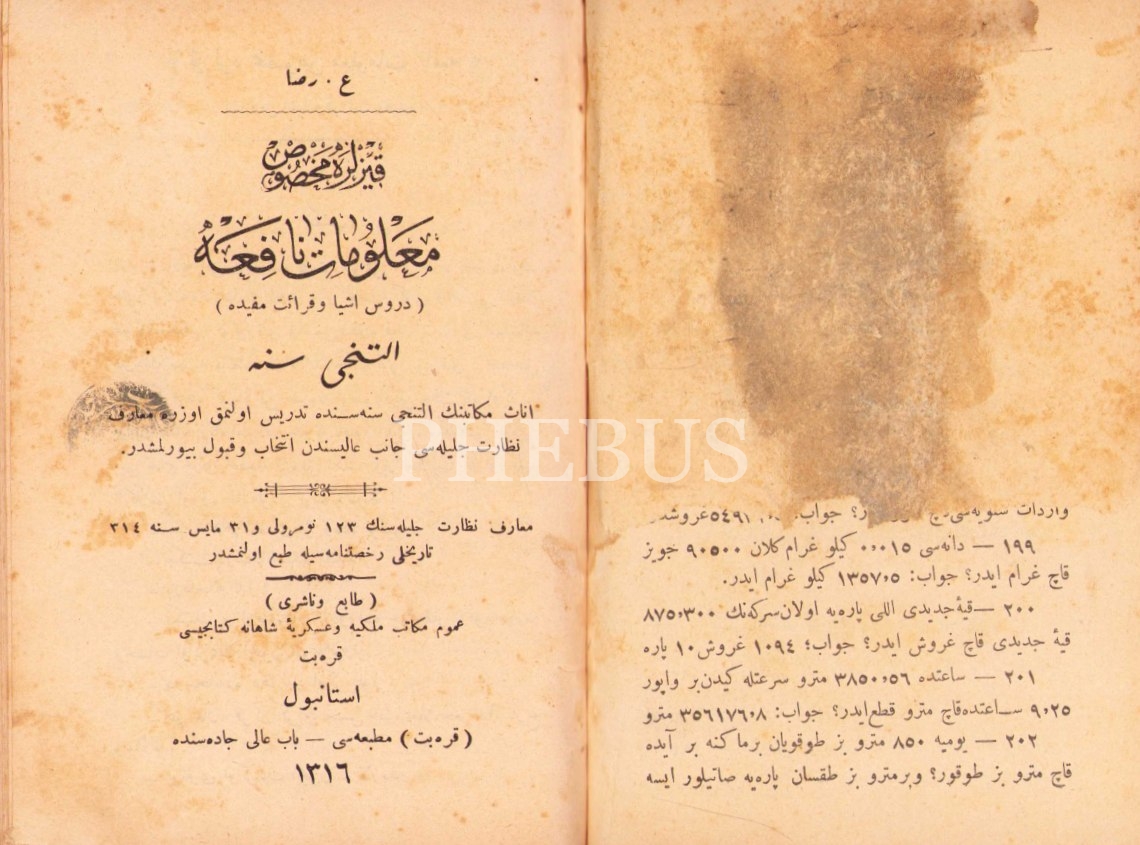 ع . رضا
قیزلره مخصوص
معلومات نافعه
( دروس اشیا و قرائت مفیده )
التنجی سنه
اناث مکاتبنك التنجی سنه سنده تدریس اولنمق اوزره معارف
نظارت جلیله سی جانب عالیسندن انتخاب و قبول بیورلمشدر.
معارف نظارت جلیله سنك ١٢٣ نومرولی و ٣١ مایس سنه ٣١٤
تاریخلی رخصتنامه سیله طبع اولنمشدر
( طابع و ناشری )
عموم مکاتب ملکیه و عسکریۀ شاهانه کتابجیسی
قره بت
استانبول
( قره بت ) مطبعه سی — باب عالی جاده سنده
١٣١٦
واردات سنویه سی قاچ جواب:
١٩٩ — دانه سی ٠,٠١٥ کیلو غرام کلان ٩٠٥٠٠ جویز
قاچ غرام ایدر؟ جواب: ١٣٥٧,٥ کیلو غرام ایدر.
٢٠٠ — قیۀ جدیدی اللی پاره یه اولان سرکه نك ٨٧٥,٣٠٠
قیۀ جدیدی قاچ غروش ایدر؟ جواب؛ ١٠٩٤ غروش ١٠ پاره
٢٠١ — ساعتده ٣٨٥٠,٥٦ مترو سرعتله کیدن بر واپور
٩,٢٥ ساعتده قاچ مترو قطع ایدر؟ جواب: ٣٥٦١٧٦,٨ مترو
٢٠٢ — یومیه ٨٥٠ مترو بز طوقویان بر ماکنه بر آیده
قاچ مترو بز طوقور؟ و بر مترو بز طقسان پاره یه صاتیلور ایسه
PHEBUS